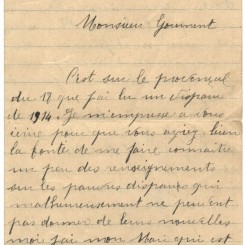 Monsieur Gourment
C'est sur le provensal
du 17 que j'ai lu un disparu
de 1914. Je m'empresse a vous
écrire pour que vous ayiez bien
la bonté de me faire connaitre
un peu des renseignements
sur les pauvres disparus qui
malheureusement ne peuvent
pas donner de leurs nouvelles
moi j'ai mon Mari qui est